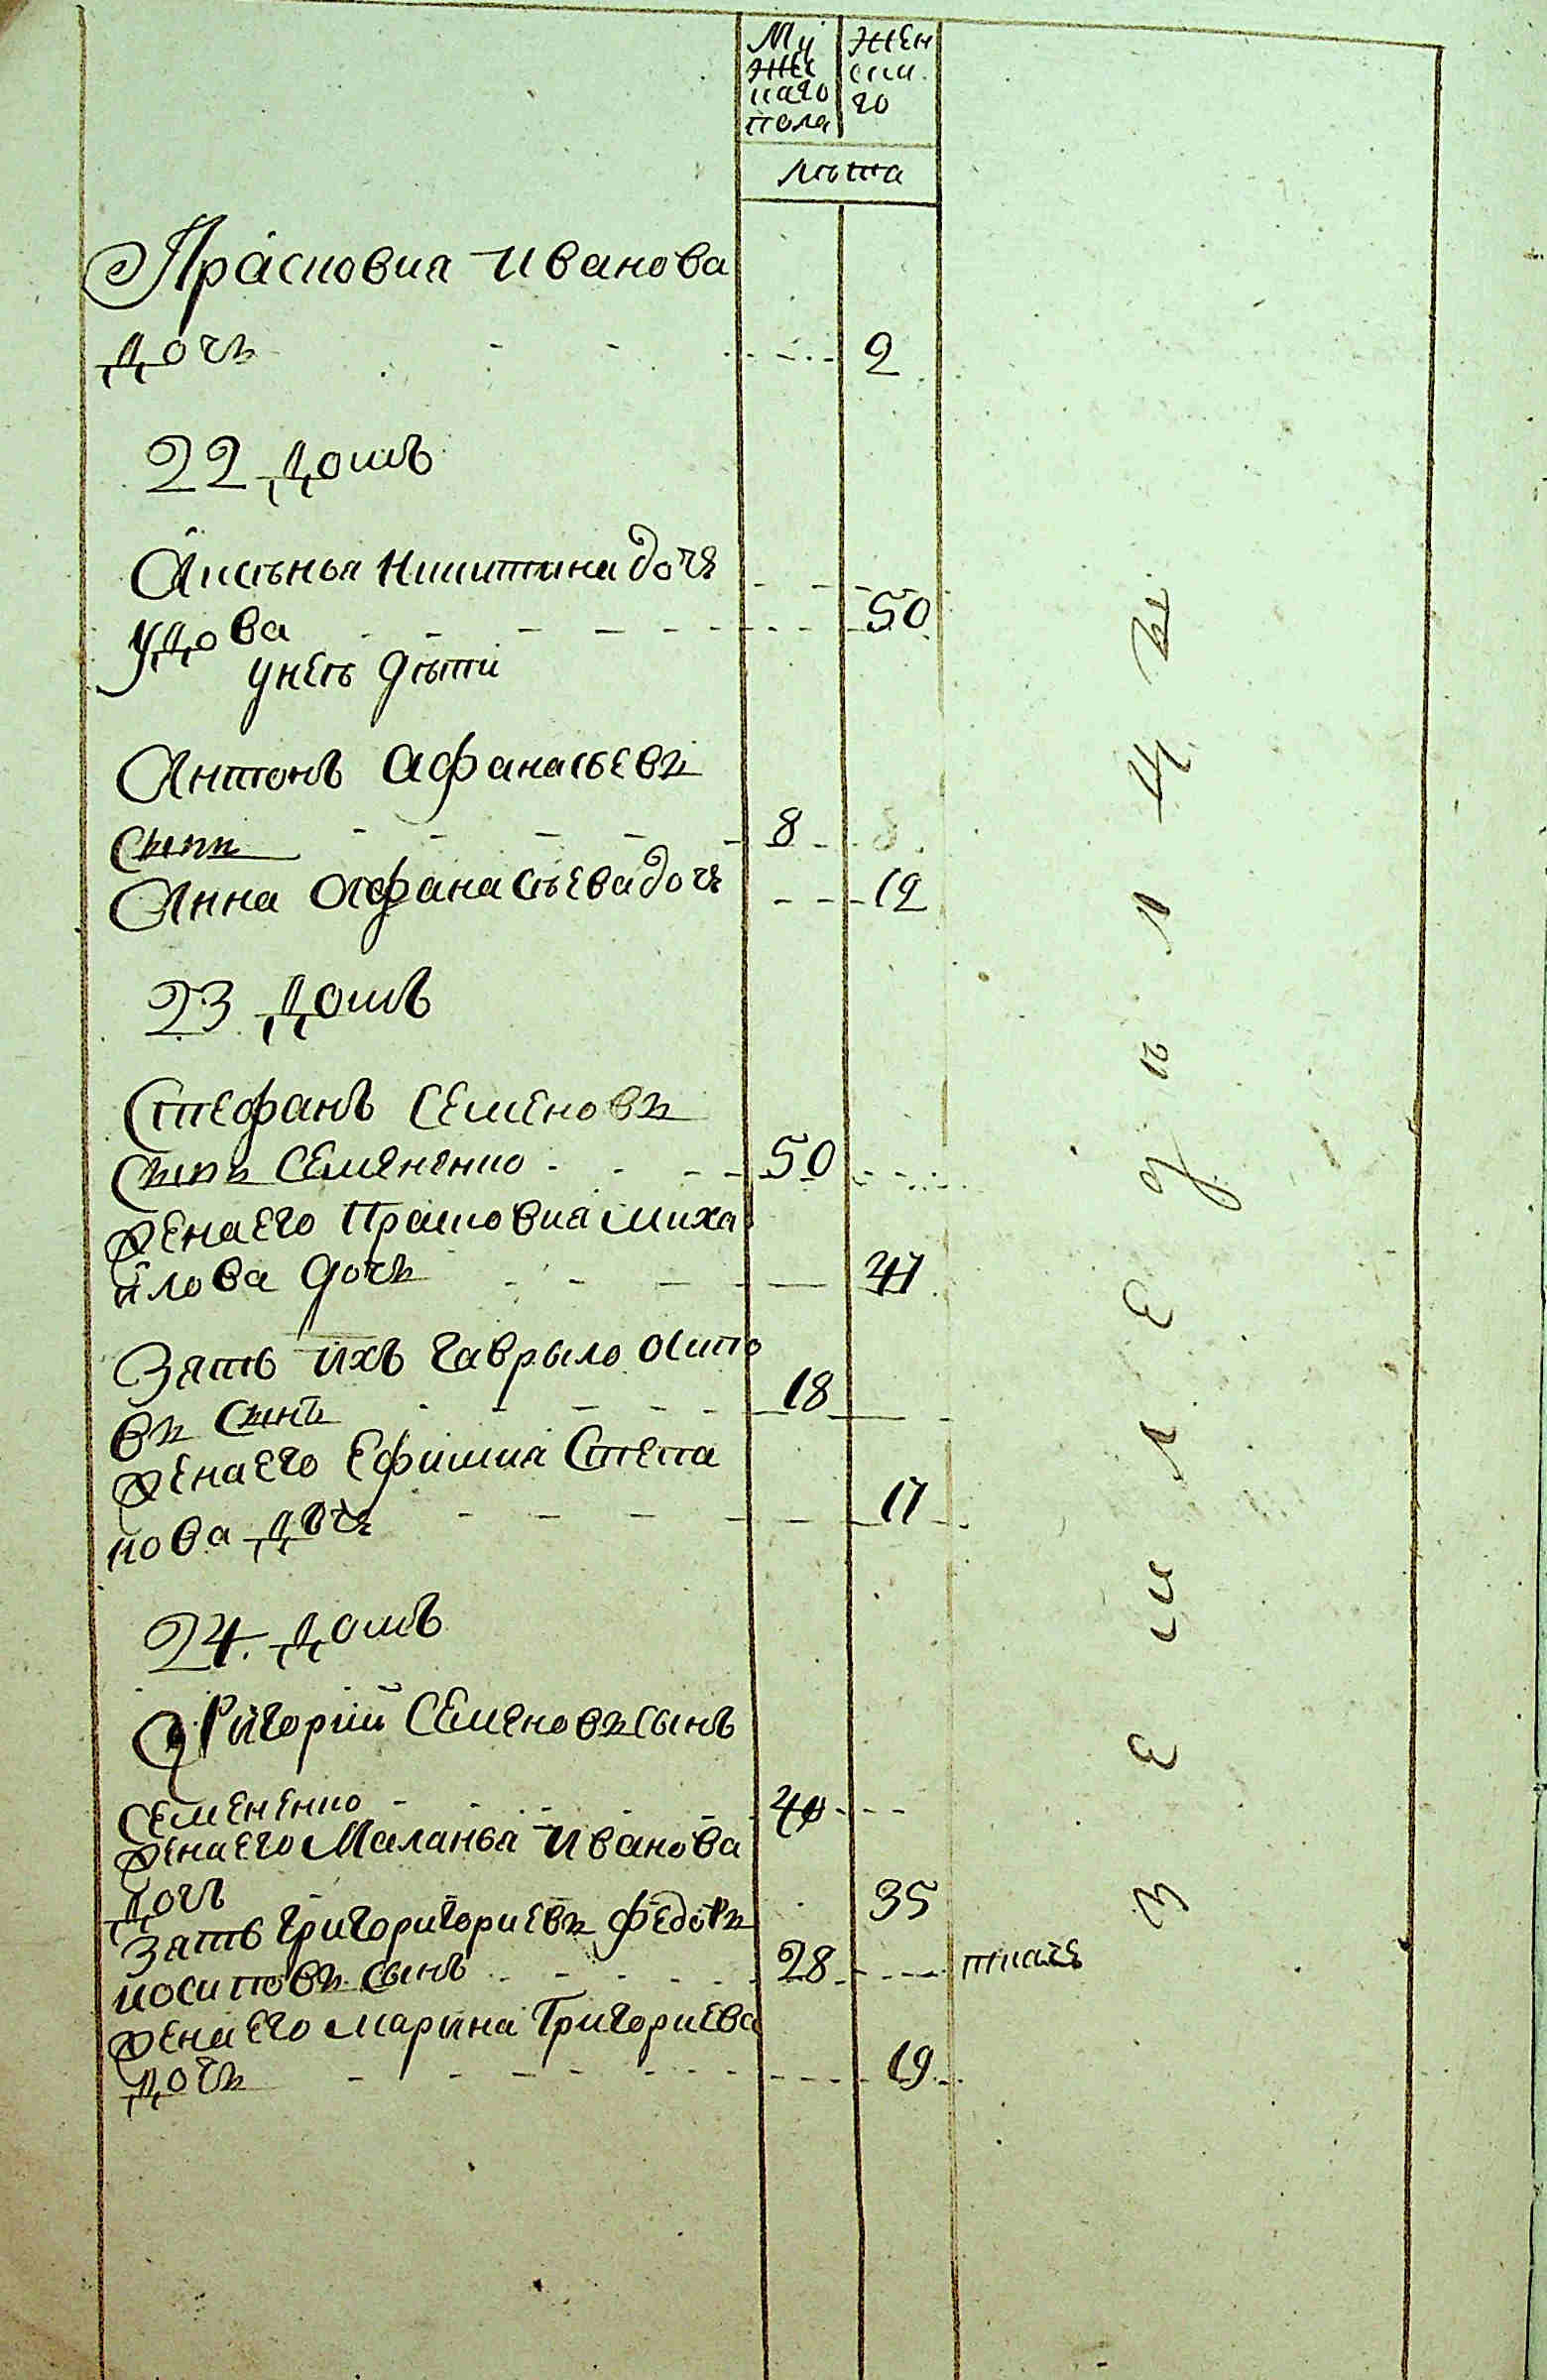 Му Жен
жес ска
каго го
пола
лѣта
Прасковия Иванова
дочъ 2
22 домъ
Аксѣнья Никитина дочъ
удова 50
унеѣ дѣти
Антонъ Афанасьевъ
сынъ 8
Анна Афанасъева дочъ 12
23 домъ
Стефанъ Семеновъ
сынъ Семененко 50
жена его Прасковия Миха
йлова дочъ 41
Зять ихъ Гаврыло Осипо
въ сынъ 18
жена его Ефимия Степа
нова дочъ 17
24 домъ
Григорий Семеновъ сынъ
Семененко 40
жена его Маланья Иванова
дочъ 35
Зять Григоригориевъ Федоръ
иосиповъ сынъ 28 ткачъ
жена его Марина Григориева
дочъ 19
Земледѣлцы